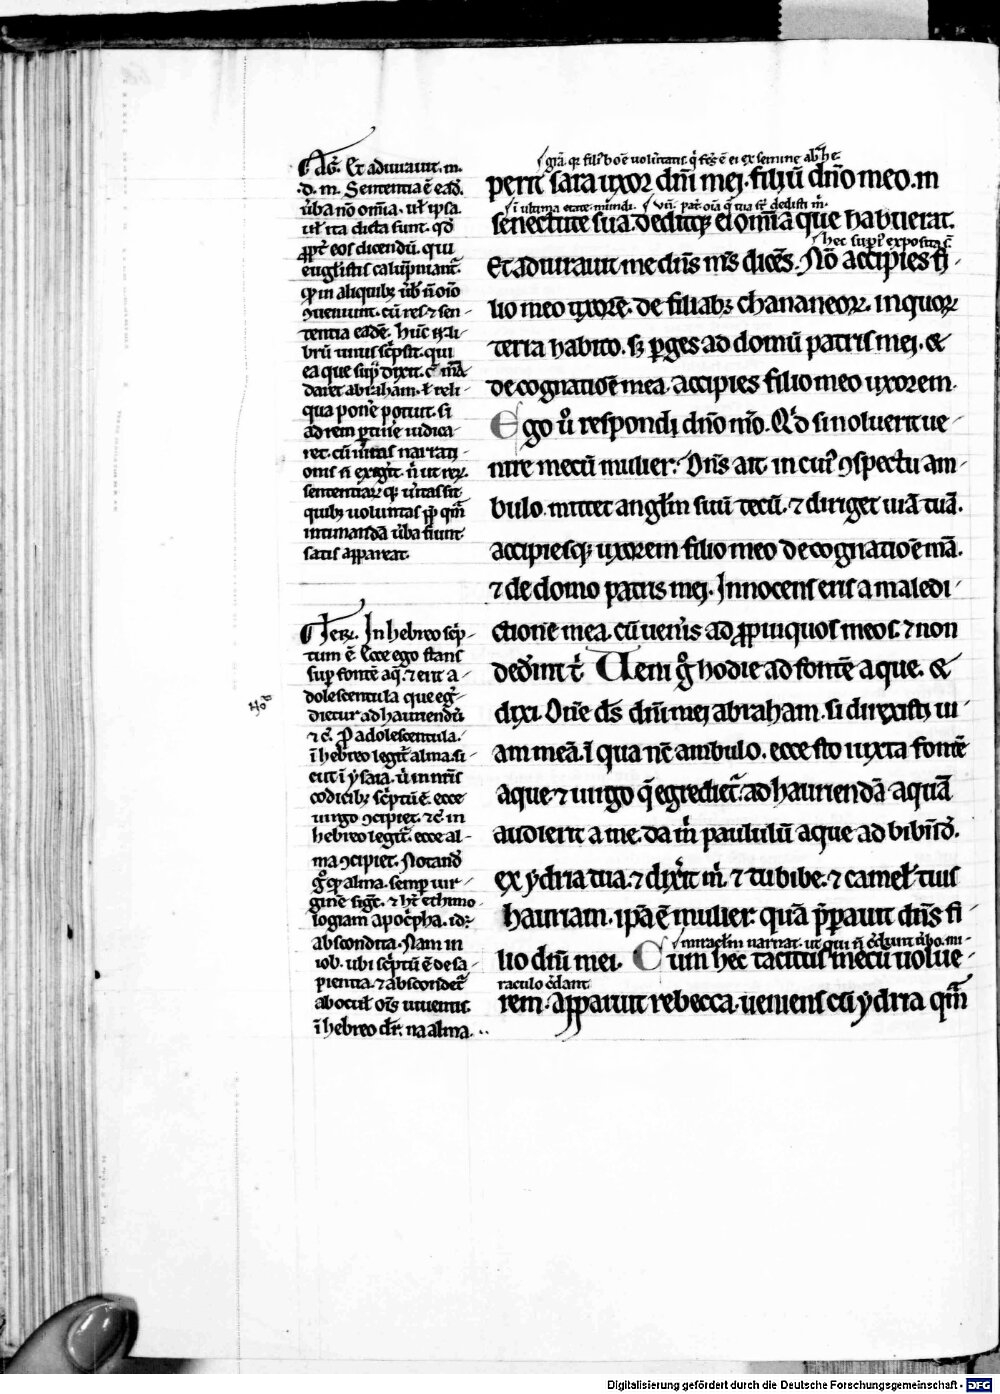 Aug̅. Et adiurauit. m.
.d. m. Sententia ē ead̅.
u̅ba nō om̅ia. ul̅ ip̅sa.
ul̅ ita dicta sunt. qd̅
ꝓpt̅ eos dicendū. qui
eug̅listis calūpniant̅.
qͥ in aliquibꝫ u̅b̅ n̅ oīo
ꝯueniunt. cū res ⁊ sen-
tentia eadē. Hūc n̅ li-
brū unus sc̅psit. qui
ea que sup̅ dixit. cū mā-
daret abraham. ł reli-
qua pon̅e potuit. si
ad rem ꝑtin̅e iudica-
ret. cū u̅itas narrati-
onis n̅ exigit. n̅ ut reꝝ
sententiarꝫ qꝫ u̅itas sit.
quibꝫ uoluntas ꝓp̅ qm̅
intimandā u̅ba fiunt
satis appareat.
Ier̅. In hebreo sc̅p-
tum ē. Ecce ego stans
sup̅ fontē aq̅. ⁊ erit a-
dolescentula que eg̅-
dietur ad hauriendū
⁊ c̅. P̅ adolescentula.
ī hebreo legit̅ alma. si-
cut ī ysaia. u̅ in nr̅is
codicibꝫ sc̅ptū ē. ecce
uirgo ꝯcipiet. ⁊ c̅. in
hebreo legit̅. ecce al-
ma ꝯcipiet. Notand̅
g̊ qd̅ alma. semp̅ uir-
ginē sig̅t. ⁊ h̅t ethimo-
logiam apoc̅pha. id.
abscondita. Nam in
iob. ubi sc̅ptū ē de sa-
pientia. ⁊ absconder̅
ab ocul̅ om̅s uiuentis.
ī hebreo dr̅. na alma.
No͞
gr̅a. qꝫ filiꝰ boē uolūtatis. q̅ fec̅ ē ei ex semine abrͣhe.
perit sara uxor dn̅i mei. filiū dn̅o meo. in
ī ultima etate mūndi. un̅. pat̅ om̅ia q̅ tua s̅t dedisti m̅.
senectute sua. deditqꝫ ei om̅ia que habuerat.
hec sup̅iꝰ exposita s̅
Et adiurauit me dn̅s m̅s dice̅s. Nō accipies fi-
lio meo uxorē. de filiabꝫ chananeoꝝ. in quoꝝ
terra habito. sꝫ ꝑges ad domū patris mei. &
de cognatiōe mea. accipies filio meo uxorem.
Ego u̅ respondi dn̅o m̅o. Qͥd si noluerit ue-
nire mecū mulier. Dn̅s ait in cuiꝰ ꝯspectu am-
bulo. mittet angl̅m suū tecū. ⁊ diriget uiā tuā.
accipiesqꝫ uxorem filio meo de cognatiōe m̅a.
⁊ de domo patris mei. Innocens eris a maledi-
ctione mea. cū uen̅is ad ꝓpinquos meos. ⁊ non
ded̅int tͥ. Ueni g̊ hodie ad fontē aque. &
dixi. Dn̅e ds̅ dn̅i mei abraham. si direxisti ui-
am meā. ī qua nc̅ ambulo. ecce sto iuxta fontē
aque. ⁊ uirgo q̅ egrediet̅ ad hauriendā aquā
audierit a me. da mͥ paululū aque ad bibn̅d̅.
ex ydria tua. ⁊ dix̅it mͥ. ⁊ tu bibe. ⁊ camel̅ tuis
hauriam. ip̅a ē mulier quā p̅parauit dn̅s fi-
lio dn̅i mei.
miracl̅m narrat. ut qui n̅ c̅dunt u̅bo. mi-
Cum hec tacitus mecū uolue-
raculo c̅dant
rem. apparuit rebecca. ueniens cū ydria qm̅
Digitalisierung gefördert durch die Deutsche Forschungsgemeinschaft - DFG